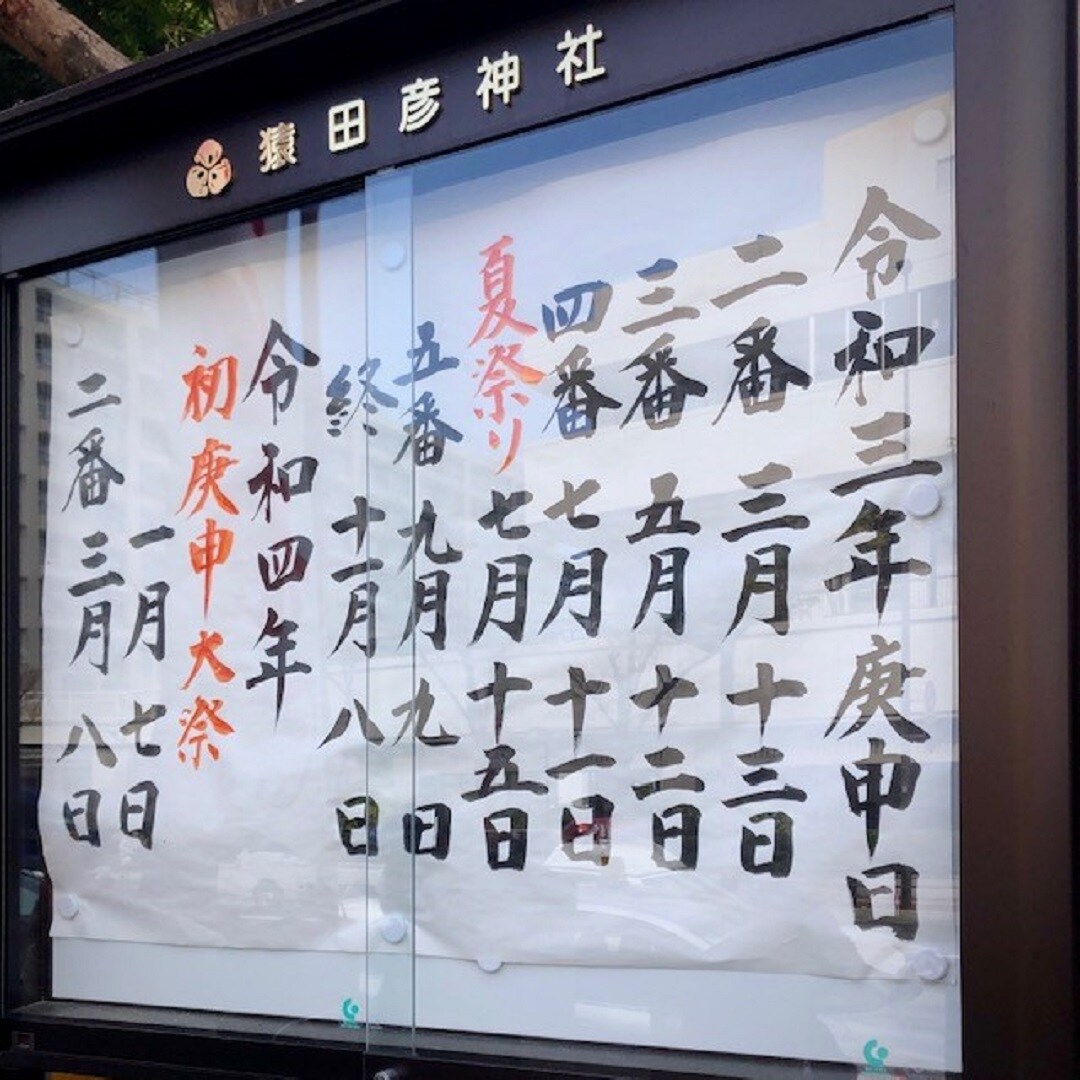 猿田彦神社
令和三年庚申日
二番 三月十三日
三番 五月十二日
四番 七月十一日
夏祭り 七月十五日
五番 九月九日
終 十一月八日
令和四年
初庚申大祭
一月七日
二番 三月八日